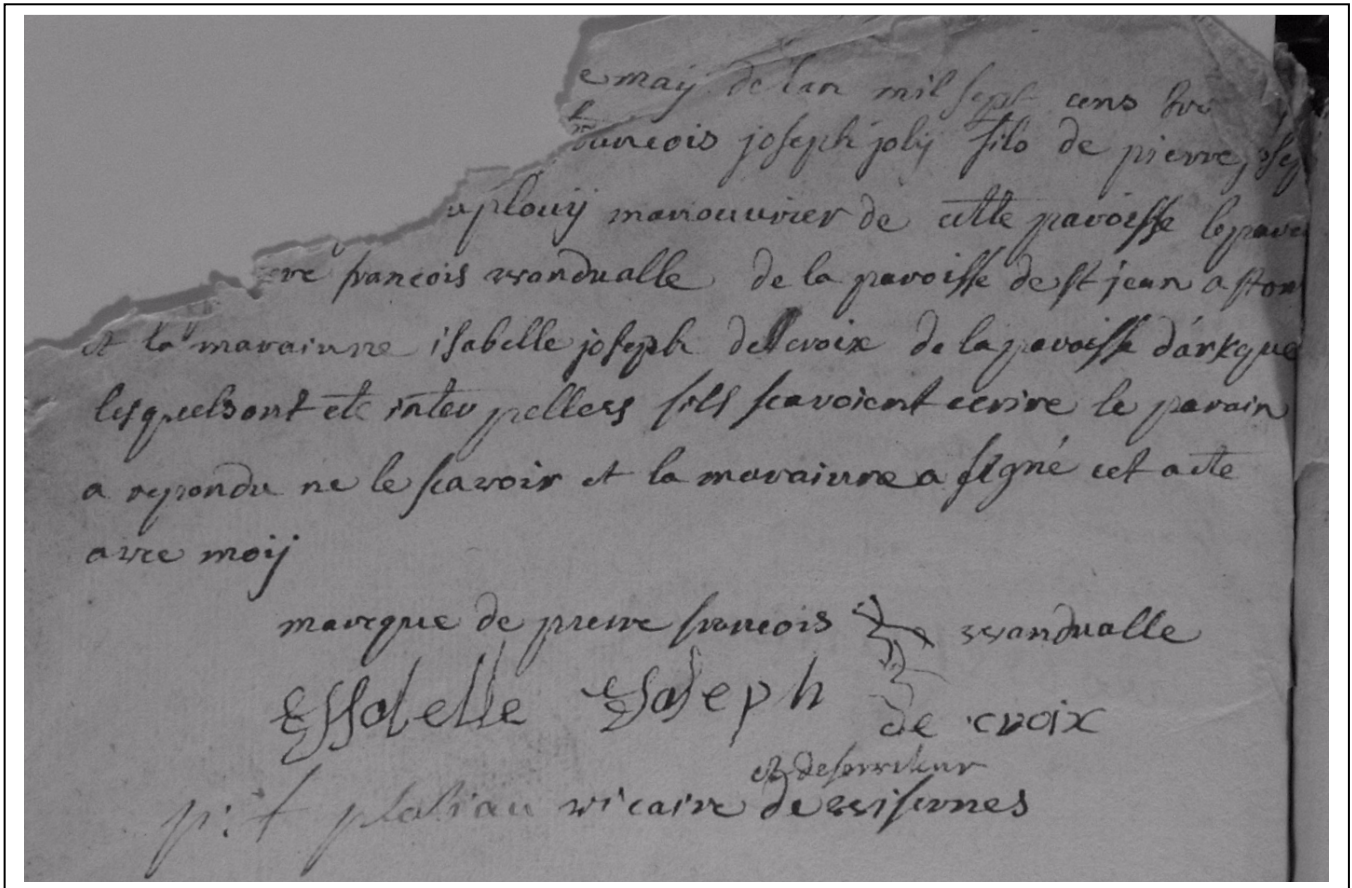 e maij de lan mil sept cens
francois joseph jolij fils de pierre josep
uplouij manouuvrier de cette paroisse le para
rre francois wandualle de la paroisse de st jean a st om
et la marainne isabelle joseph delcroix de la paroisse d'arkque
lesquels ont eté inter pellers sils scavoient ecrire le parain
a repondu ne le scavoir et la marainne a signé cet acte
avec moij
marque de pierre francois wandualle
Essabelle Joseph de croix
et deserviteur
p: f platiau vicaire de wisernes